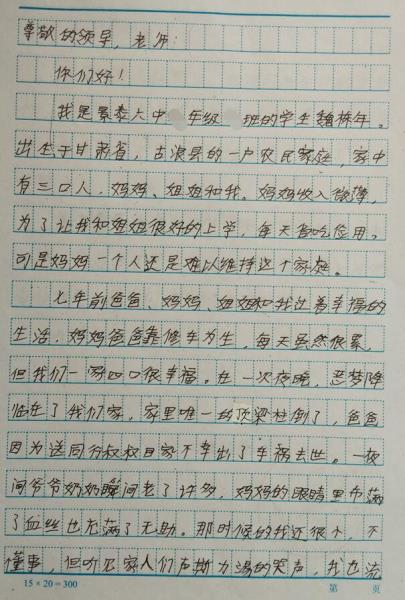 尊敬的领导，老师：
你们好！
我是景泰六中 年级 班的学生魏栋年。
出生于甘肃省，古浪县的一户农民家庭，家中
有三口人，妈妈、姐姐和我。妈妈收入微薄，
为了让我和姐姐很好的上学，每天省吃俭用。
可是妈妈一个人还是难以维持这个家庭。
七年前爸爸、妈妈、姐姐和我过着幸福的
生活，妈妈爸爸靠修车为生，每天虽然很累，
但我们一家四口很幸福。在一次夜晚，恶梦降
临在了我们家，家里唯一的顶梁柱倒了，爸爸
因为送同行叔叔回家不幸出了车祸去世。一夜
间爷爷奶奶瞬间老了许多，妈妈的眼睛里布满
了血丝也充满了无助。那时候的我还很小，不
懂事，但听见家人们声撕力竭的哭声，我也流
15×20=300 第 页